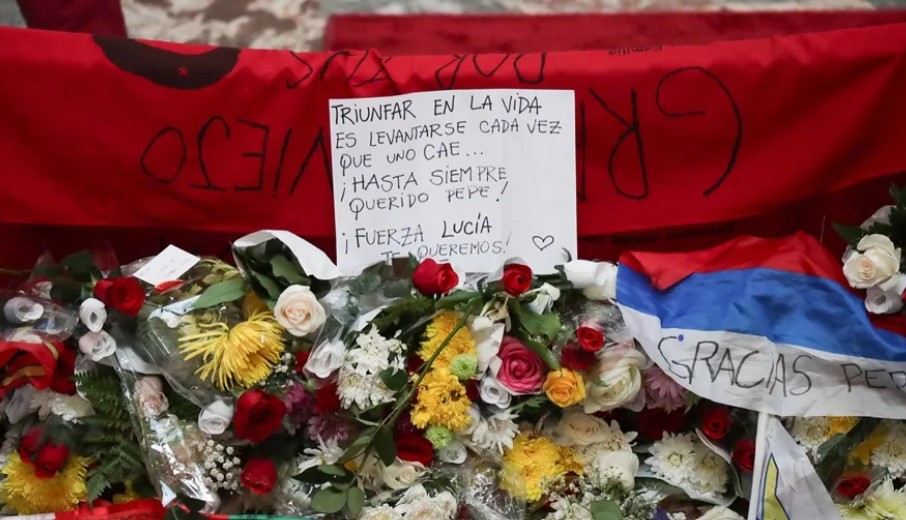 Familia
POR TUS
GRACIAS VIEJO
TRIUNFAR EN LA VIDA
ES LEVANTARSE CADA VEZ
QUE UNO CAE...
¡HASTA SIEMPRE
QUERIDO PEPE!
¡FUERZA LUCÍA
TE QUEREMOS!
GRACIAS PEP